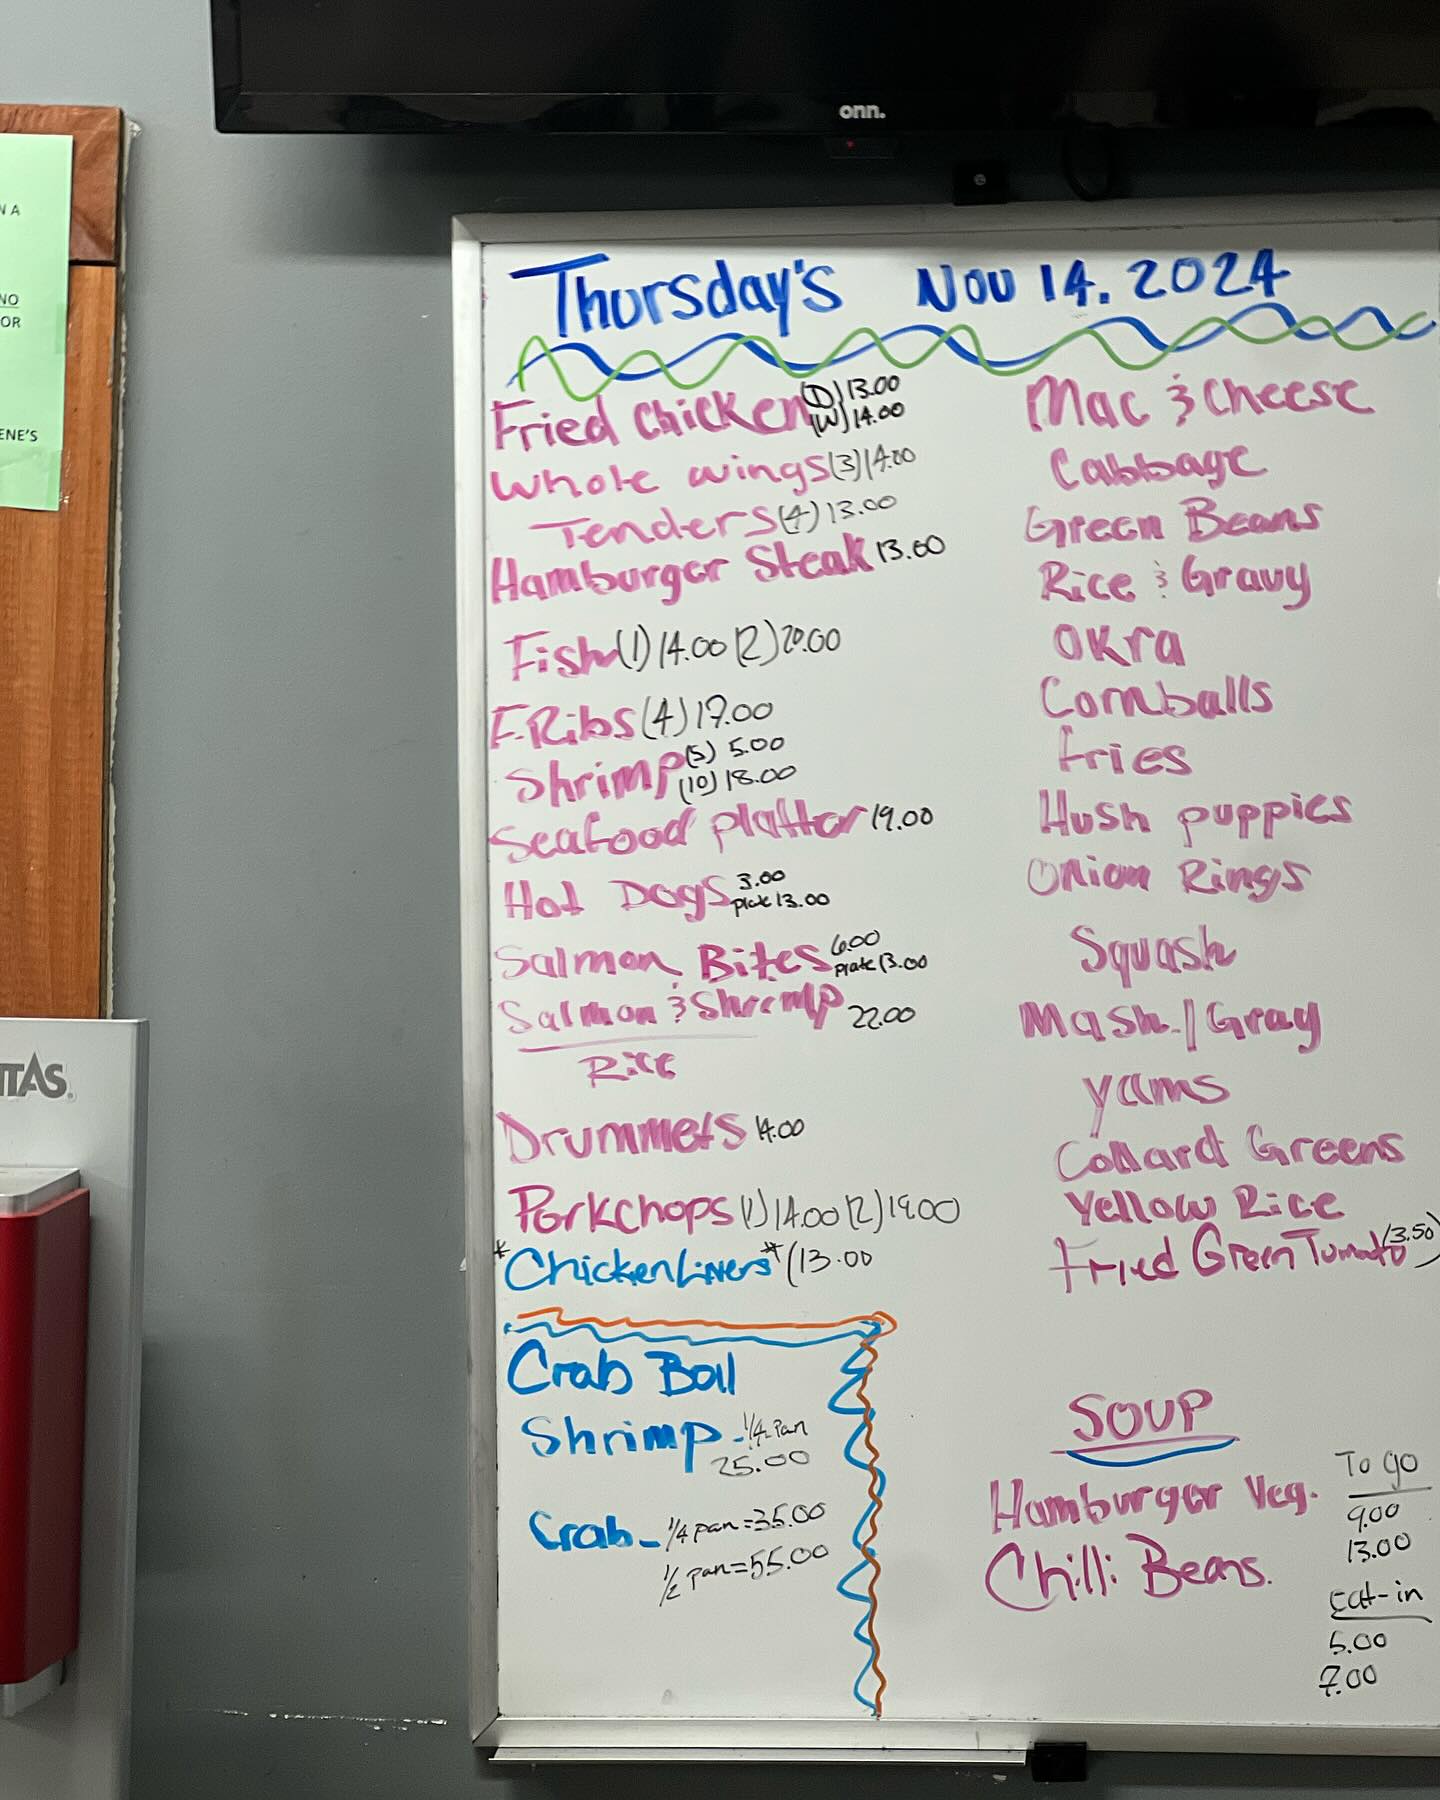 onn.
N A
NO
OR
ENE'S
ITAS
Thursday's Nov 14. 2024
Fried Chicken (D) 13.00
(W) 14.00
Whole wings (3) 14.00
Tenders (4) 13.00
Hamburger Steak 13.00
Fish (1) 14.00 (2) 20.00
F.Ribs (4) 17.00
Shrimp (5) 5.00
(10) 18.00
Seafood platter 19.00
Hot Dogs 3.00
plate 13.00
Salmon Bites 6.00
plate 13.00
Salmon & Shrimp 22.00
Rice
Drummets 14.00
Porkchops (1) 14.00 (2) 19.00
*Chicken Livers* (13.00
Crab Boil
Shrimp - 1/4 Pan
25.00
Crab - 1/4 pan = 35.00
1/2 pan = 55.00
Mac & Cheese
Cabbage
Green Beans
Rice & Gravy
Okra
Cornballs
Fries
Hush puppies
Onion Rings
Squash
Mash. / Gray
Yams
Collard Greens
Yellow Rice
Fried Green Tomato (3.50)
SOUP
Hamburger Veg.
Chilli Beans.
To go
9.00
13.00
Eat-in
5.00
7.00